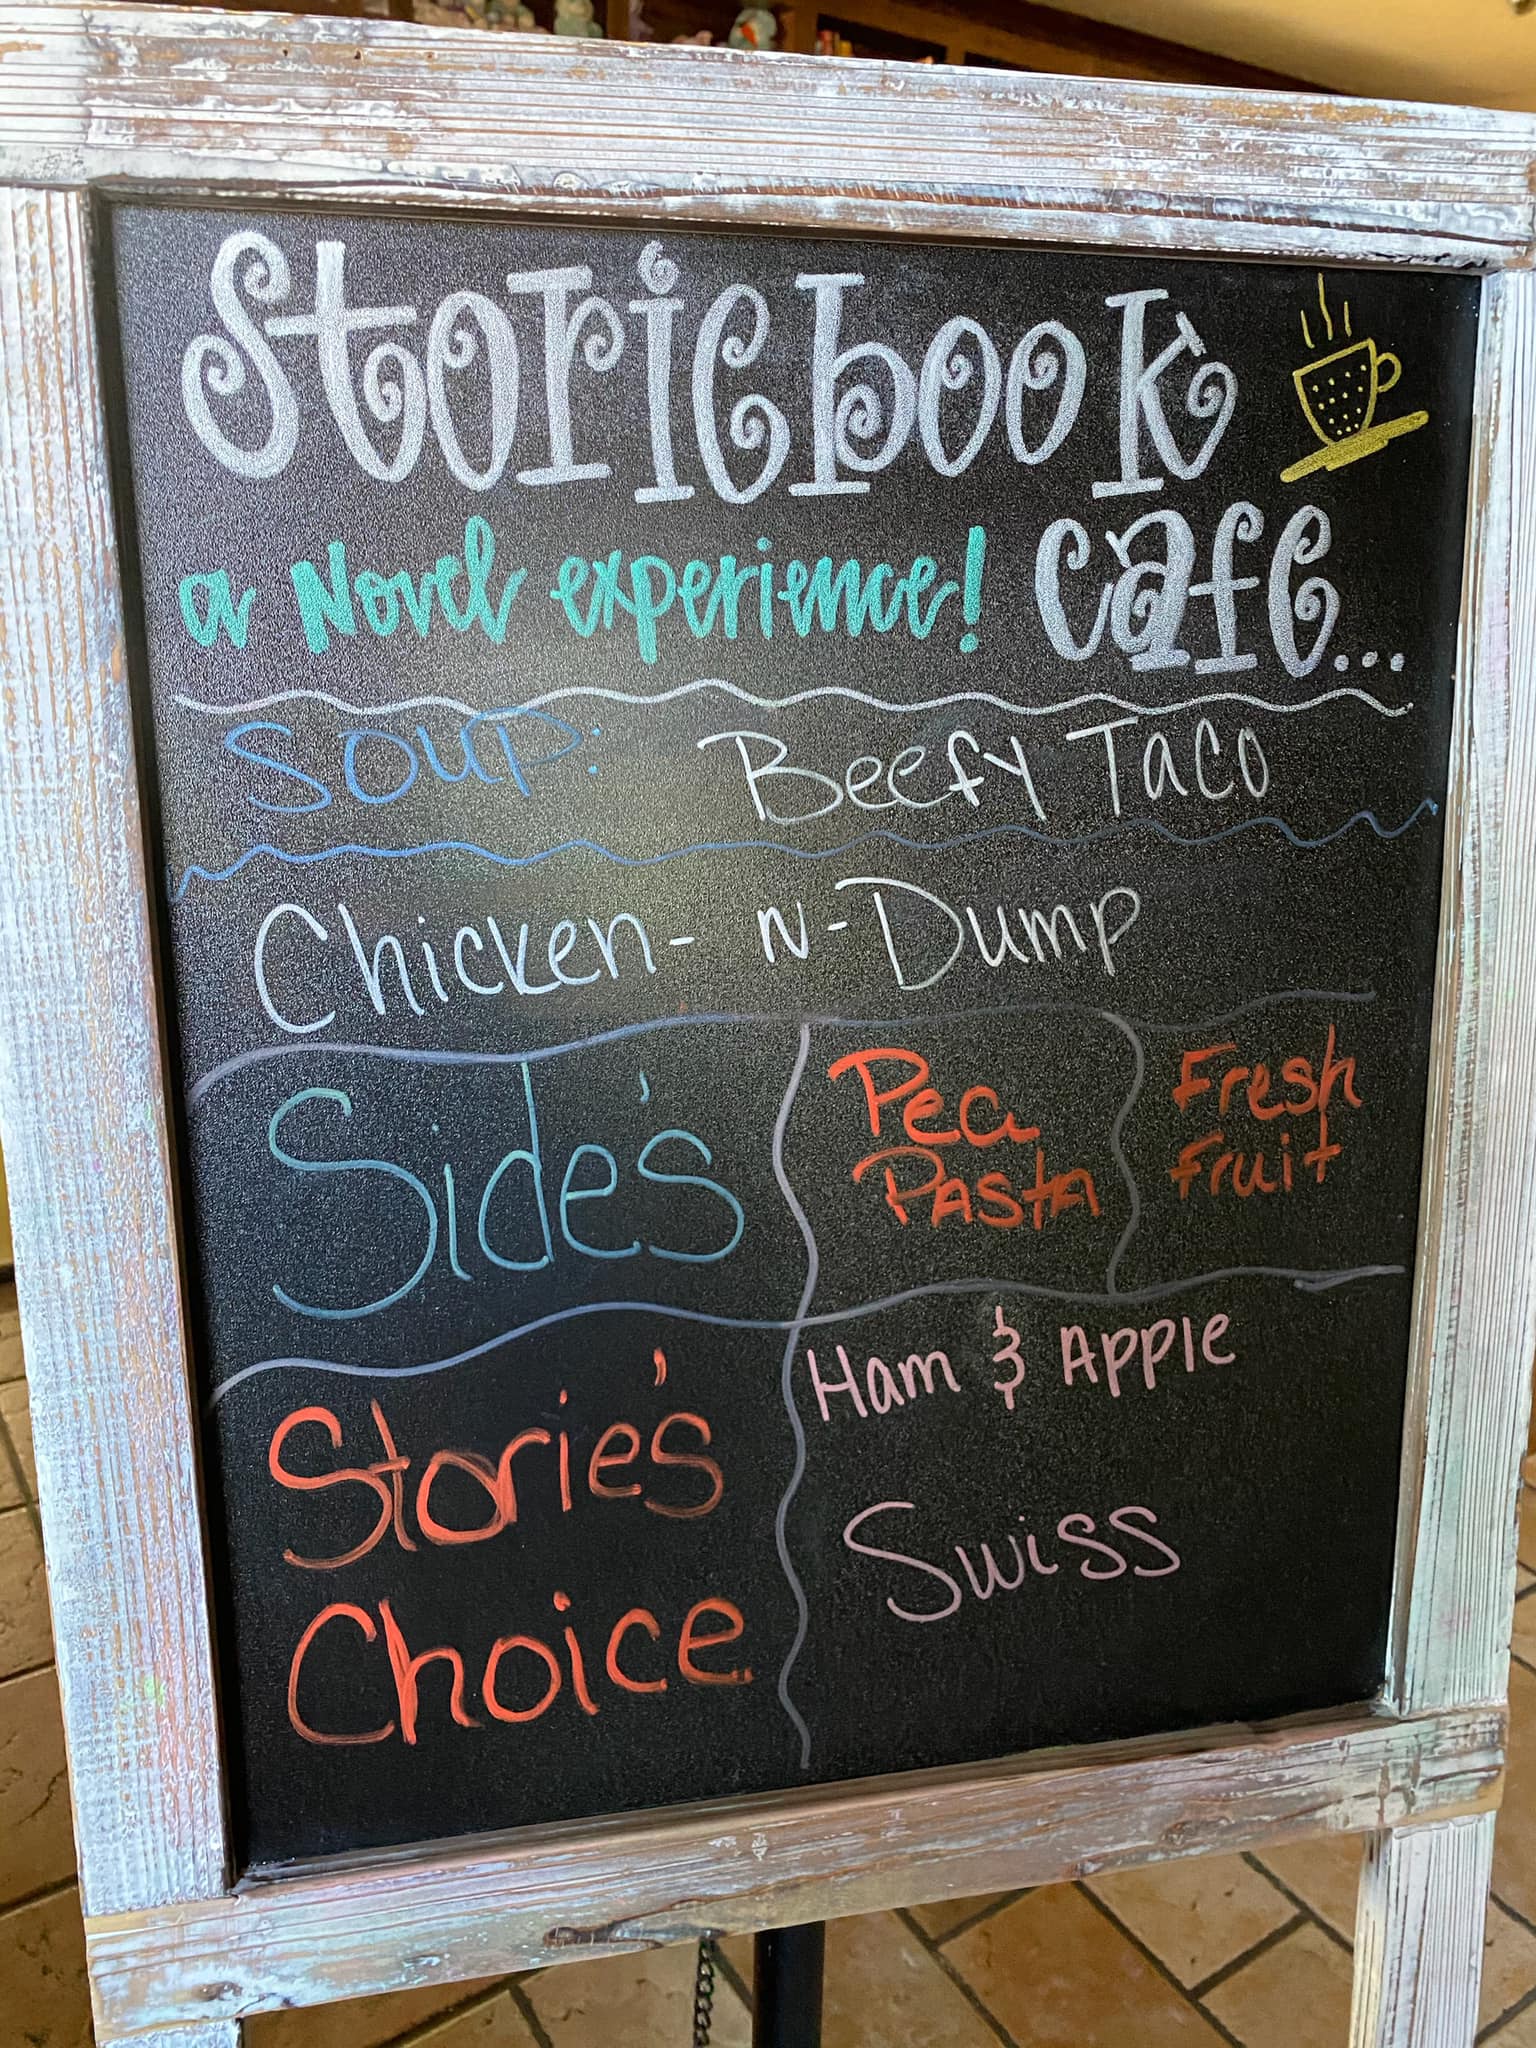 Storiebook
a Novel experience! Cafe...
Soup: Beefy Taco
Chicken- N-Dump
Side's
Pea
Pasta
Fresh
Fruit
Storie's
Choice
Ham & Apple
Swiss